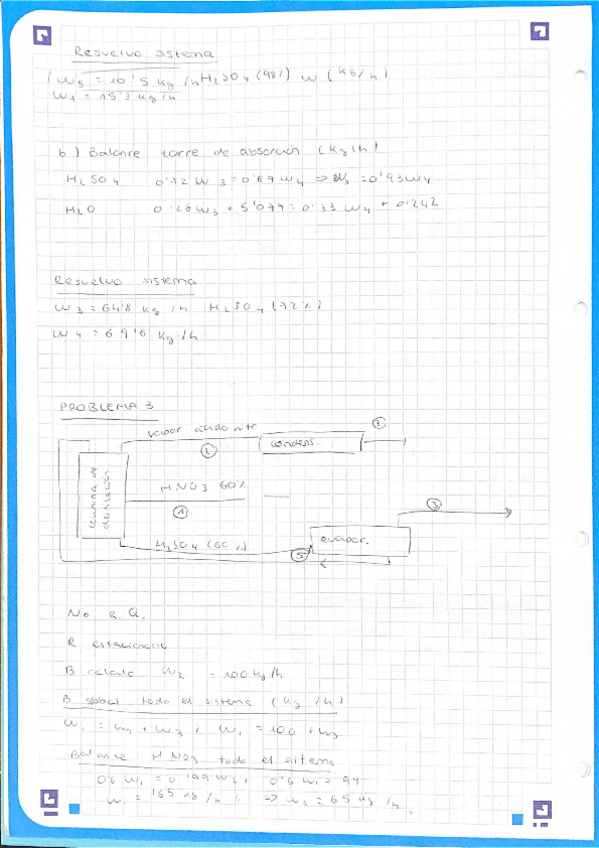 Resuelvo sistema
w5 = 10'5 kg/h H2SO4 (98%) w (kg/h)
w1 = 15'3 kg/h
b) Balance torre de absorción (kg/h)
H2SO4 0'72 w3 = 0'67 w4 => w3 = 0'93w4
H2O 0'28w3 + 5'077 = 0'33 w4 + 0'242
Resuelvo sistema
w3 = 64'8 kg/h H2SO4 (72%)
w4 = 69'6 kg/h
PROBLEMA 3
vapor ácido nítr
condens.
2
2
columna de destilación
HNO3 60%
1
3
H2SO4 (60%)
5
evapor.
No R.Q.
R estacionario
B calculo w2 = 100 kg/h
B global todo el sistema (kg/h)
w1 = w2 + w3 ; w1 = 100 + w3
Balance HNO3 todo el sistema
0'6 w1 = 0'99 w2 ; 0'6 w1 = 99
w1 = 165 kg/h => w3 = 65 kg/h.